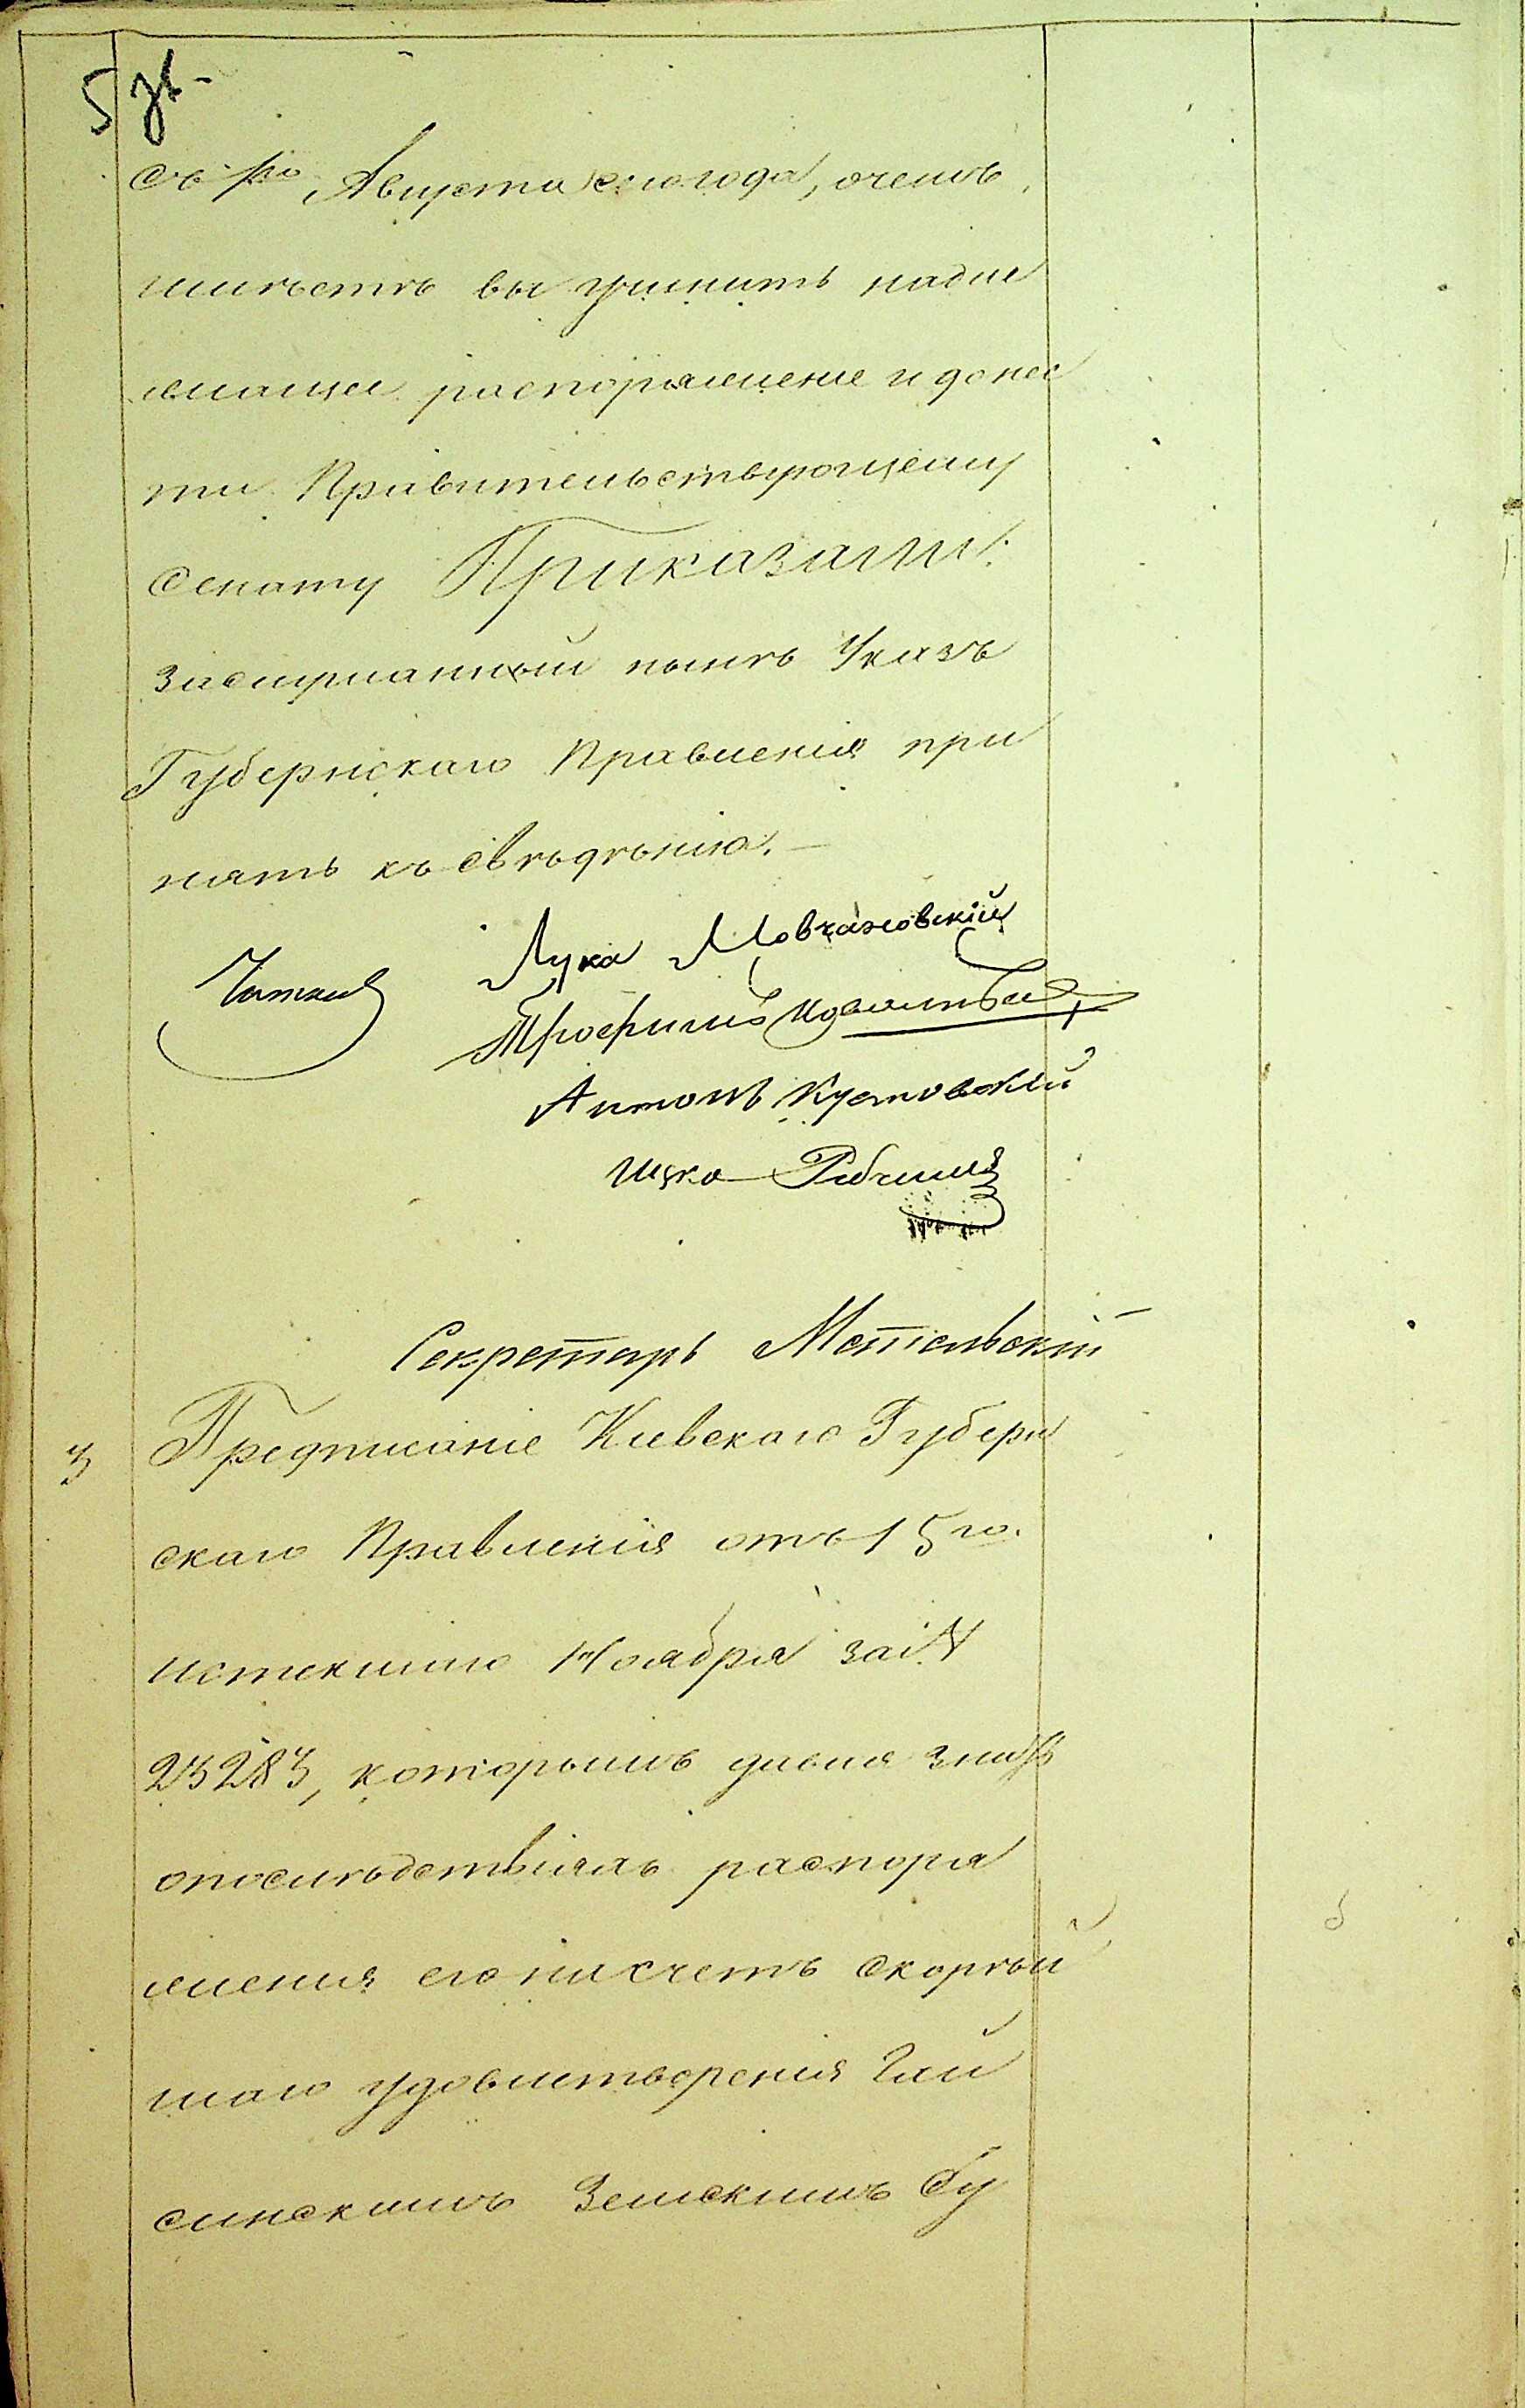 5 зв.
съ 1го Августа сего года, о чемъ
имѣетъ вы учинить надле
жащее распоряжение и донес
ти Правительствующему
Сенату Приказали:
Заслушанный нынѣ Указъ
Губернскаго Правленія при
нять къ свѣдѣнію. —
Лука Мовчановскій
Трофимъ
Антонъ Кустовскій
Ицко
Секретарь Метельскій
3 Предписаніе Киевскаго Губерн
скаго Правленія отъ 15го.
истекшаго Ноября за №
23283, которымъ давая знать
о послѣдствіяхъ распоря
жения его на счетъ скорѣй
шаго удовлетворенія Гай
синскимъ Земскимъ Су